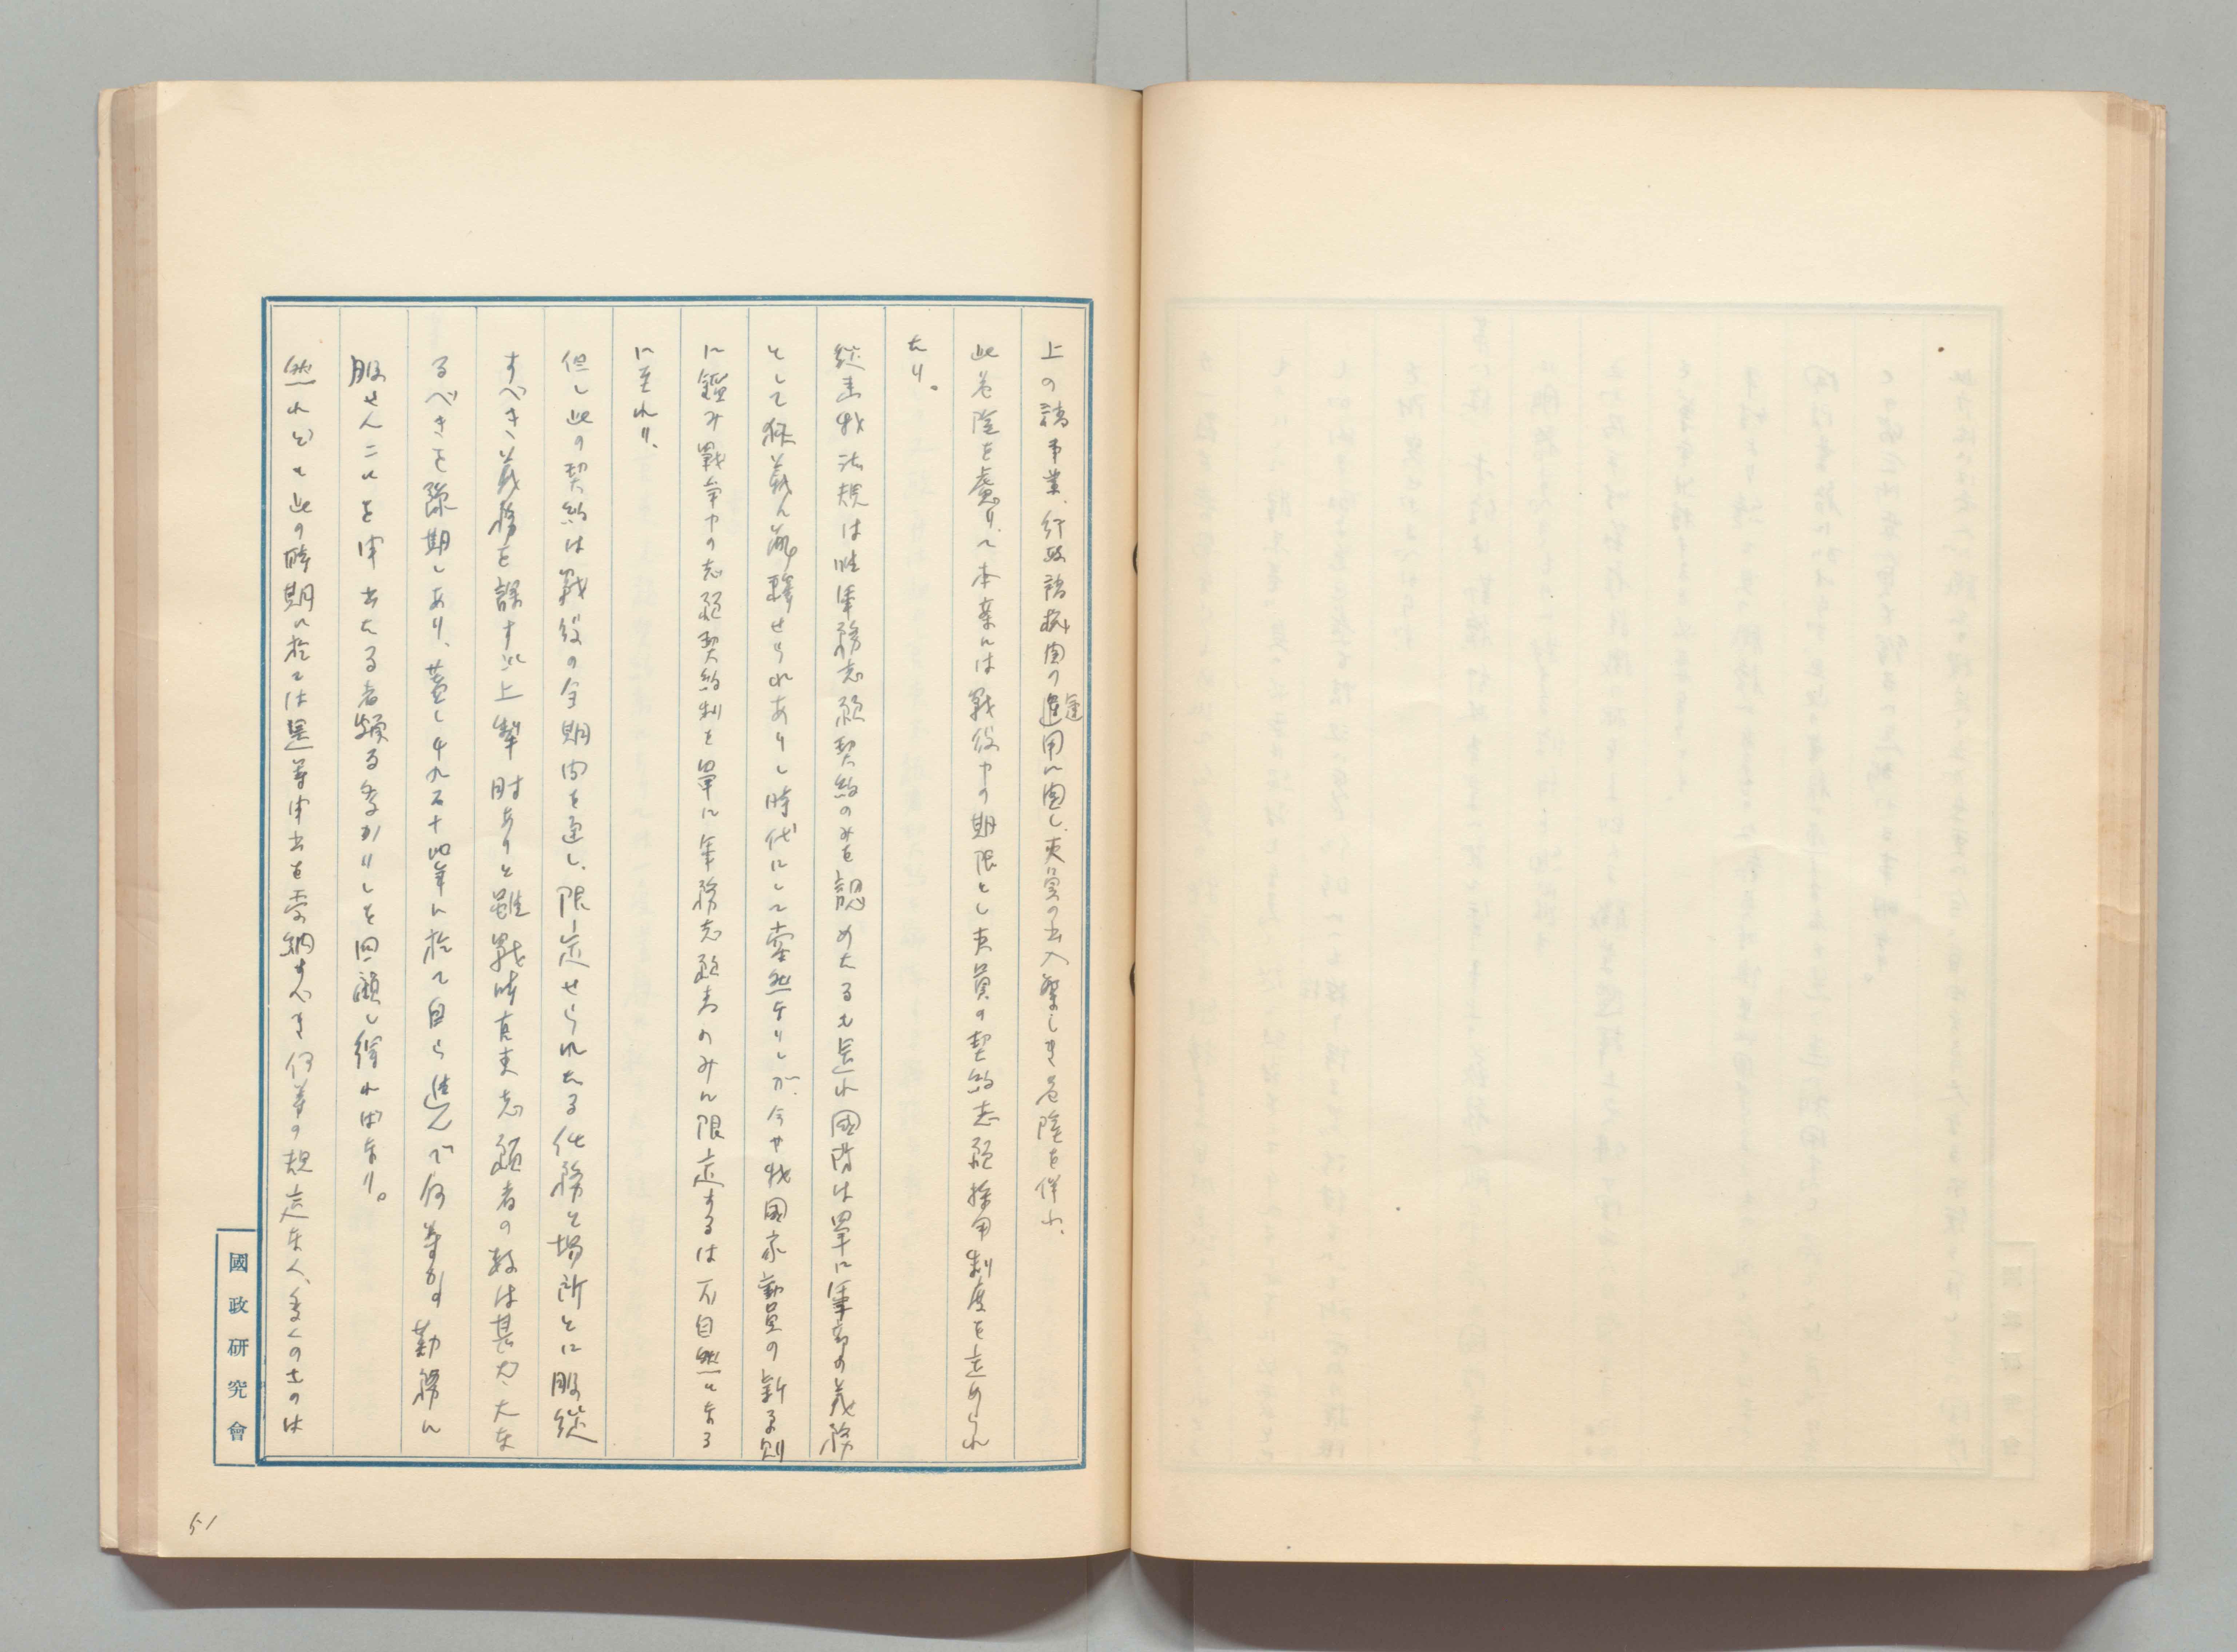 上の諸事業、行政諸機関の運用に関し、吏員の出入繁しき危険を伴ふ、
此危険を慮りて本案には戦役中の期限とし吏員の契約志願採用制度を定められ
たり。
従来我法規は唯軍務志願契約のみを認めたるも是れ国防は単に軍部の義務
として狭義に解釋せられありし時代にして当然なりしが、今や我国家動員の新原則
に鑑み戦争中の志願契約制を単に軍務志願者のみに限定するは不自然となる
に至れり、
但し此の契約は戦役の全期間を通し、限定せられたる任務と場所とに服従
すべき義務を課す此上掣肘ありと雖戦時官吏志願者の数は甚だ大な
るべきを豫期しあり、蓋し千九百十四年に於て自ら進んで何等かの勤務に
服せんことを申出たる者頗る多かりしを回顧し得ればなり。
然れども此の時期に於ては是等申出を受納すべき何等の規定なく、多くのものは
國政研究會
51